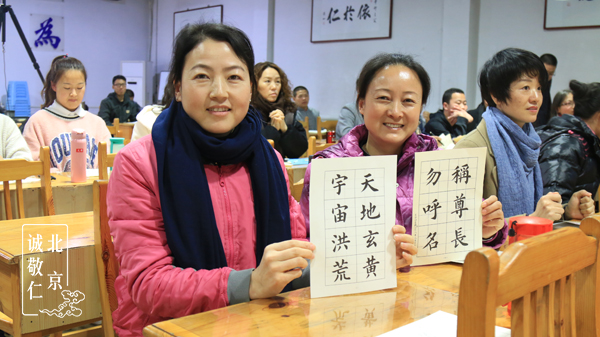 為
依於仁
天地玄黃
宇宙洪荒
稱尊長
勿呼名
北京
誠敬仁